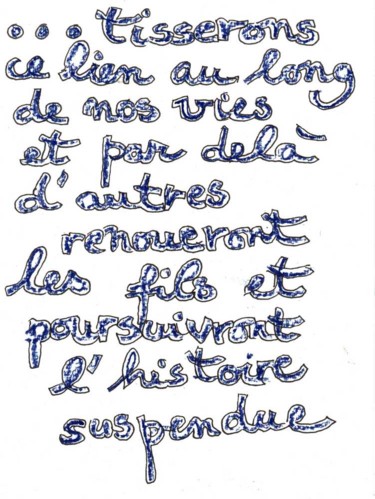 ... tisserons
ce lien au long
de nos vies
et par delà
d'autres
renoueront
les fils et
poursuivront
l'histoire
suspendue